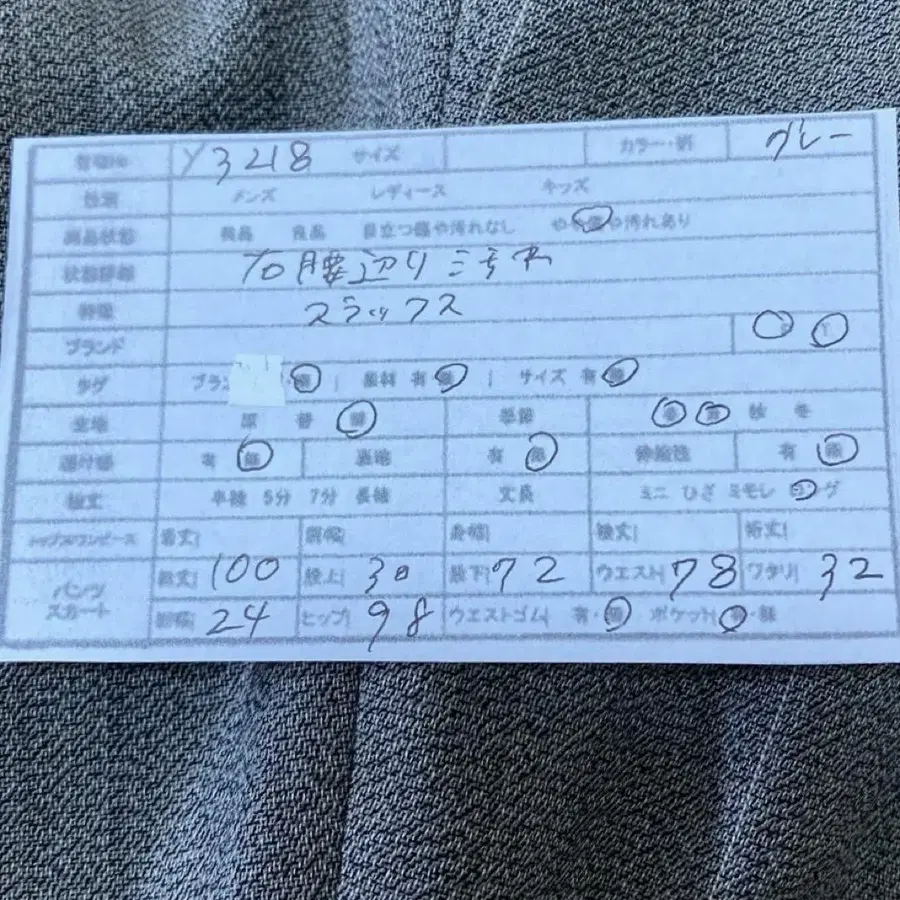 管理No Y3218 サイズ カラー・柄 グレー
性別 メンズ レディース キッズ
商品状態 良品 目立つ傷や汚れなし やや傷や汚れあり
状態詳細 右腰辺り汚れ
特徴 スラックス
ブランド
タグ ブラン 無 | 素材 有 無 | サイズ 有 無
生地 厚 普 薄 季節 春 夏 秋 冬
透け感 有 無 裏地 有 無 伸縮性 有 無
袖丈 半袖 5分 7分 長袖 丈長 ミニ ひざ ミモレ ロング
トップス/ワンピース 着丈| 肩幅| 身幅| 袖丈| 裄丈|
パンツ スカート 総丈| 100 股上| 30 股下| 72 ウエスト| 78 ワタリ| 32
裾幅| 24 ヒップ| 98 ウエストゴム| 有・無 ポケット| 有・無